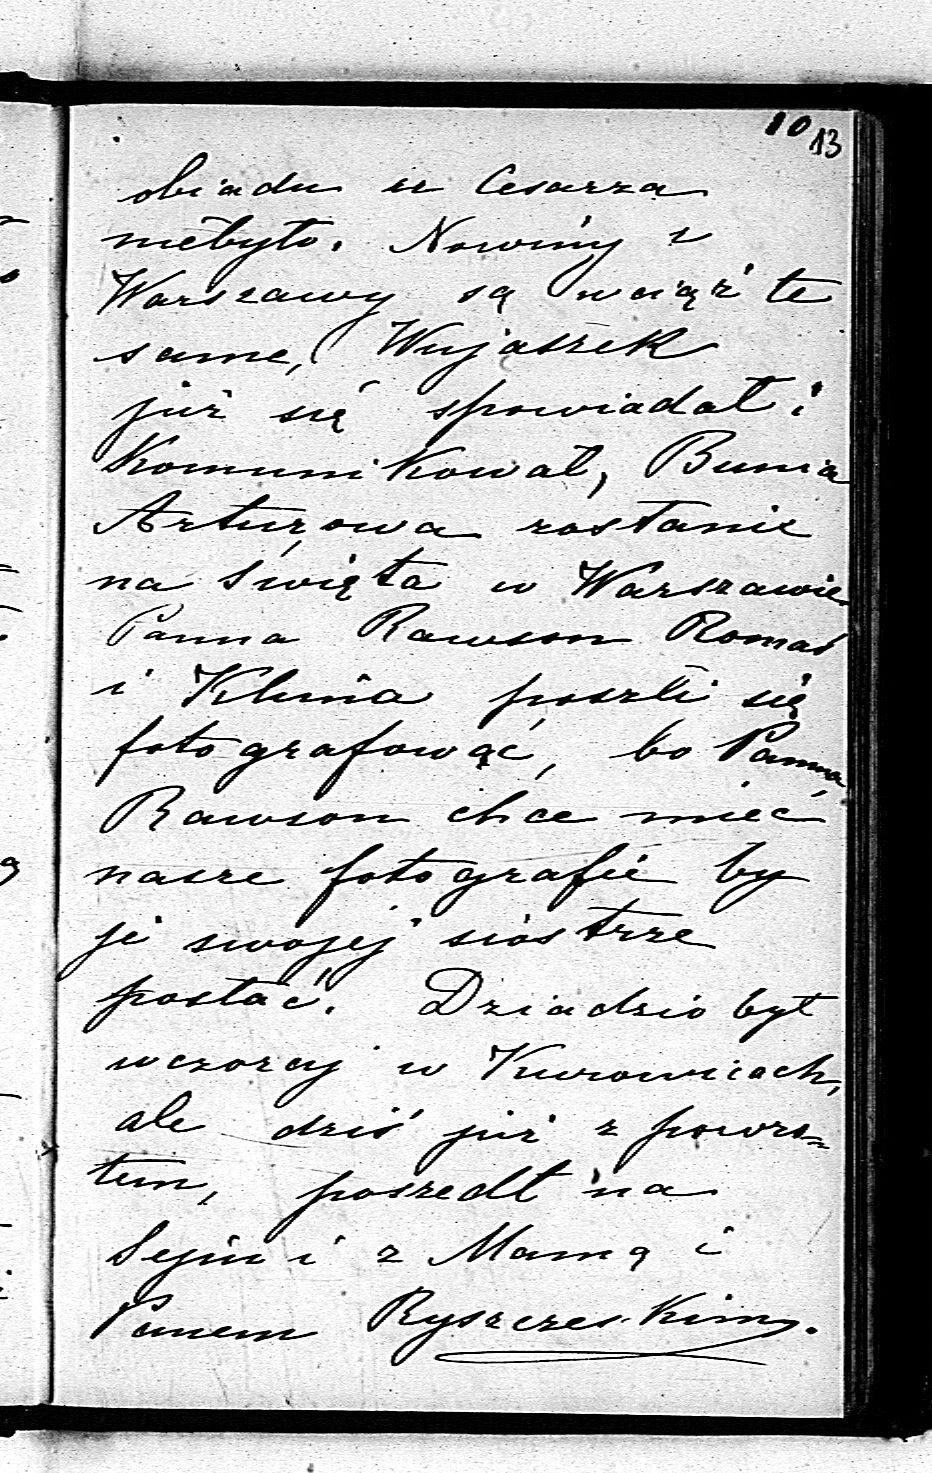 10 13
obiadu u Cesarza
niebyło. Nowiny z
Warszawy są wciąż te
same, Wujaszek
już się spowiadał i
Komunikował, Bunia
Arturowa zostanie
na święta w Warszawie
Panna Rawson Romaś
i Klunia poszli się
fotografować, bo Panna
Rawson chce mieć
nasze fotografie by
je swojej siostrze
posłać. Dziadzio był
wczoraj w Kurowicach,
ale dziś już z powro=
tem, poszedł na
Sejm i z Mamą i
Panem Ryszczeskim.